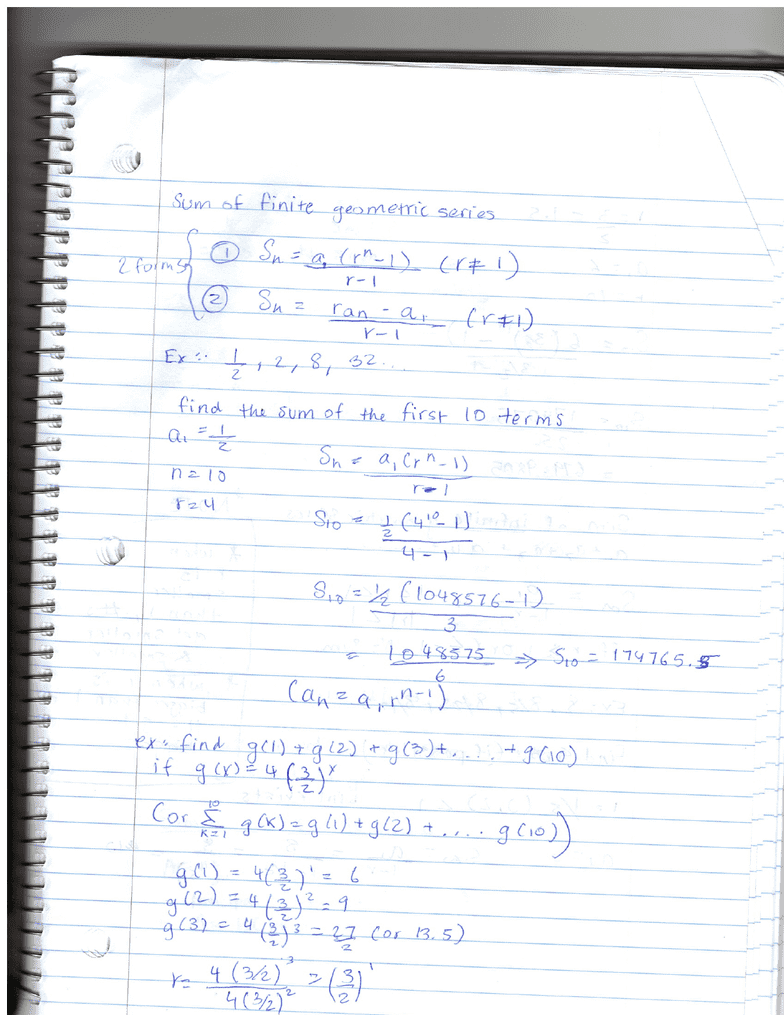 Sum of finite geometric series
2 forms
① Sn = a₁ (rⁿ-1) / r-1 (r ≠ 1)
② Sn = ran - a₁ / r-1 (r ≠ 1)
Ex: 1/2, 2, 8, 32...
find the sum of the first 10 terms
a₁ = 1/2
n = 10
r = 4
Sn = a₁(rⁿ-1) / r-1
S₁₀ = 1/2 (4¹⁰-1) / 4-1
S₁₀ = ½ (1048576-1) / 3
= 1048575 / 6 ⇒ S₁₀ = 174765.
(an = a₁rⁿ⁻¹)
ex: find g(1) + g(2) + g(3)+.... + g(10)
if g(x) = 4(3/2)ˣ
(or 10 Σ K=1 g(K) = g(1) + g(2) + .... g(10))
g(1) = 4(3/2)¹ = 6
g(2) = 4(3/2)² = 9
g(3) = 4(3/2)³ = 27/2 (or 13.5)
r = 4(3/2)³ / 4(3/2)² = (3/2)¹